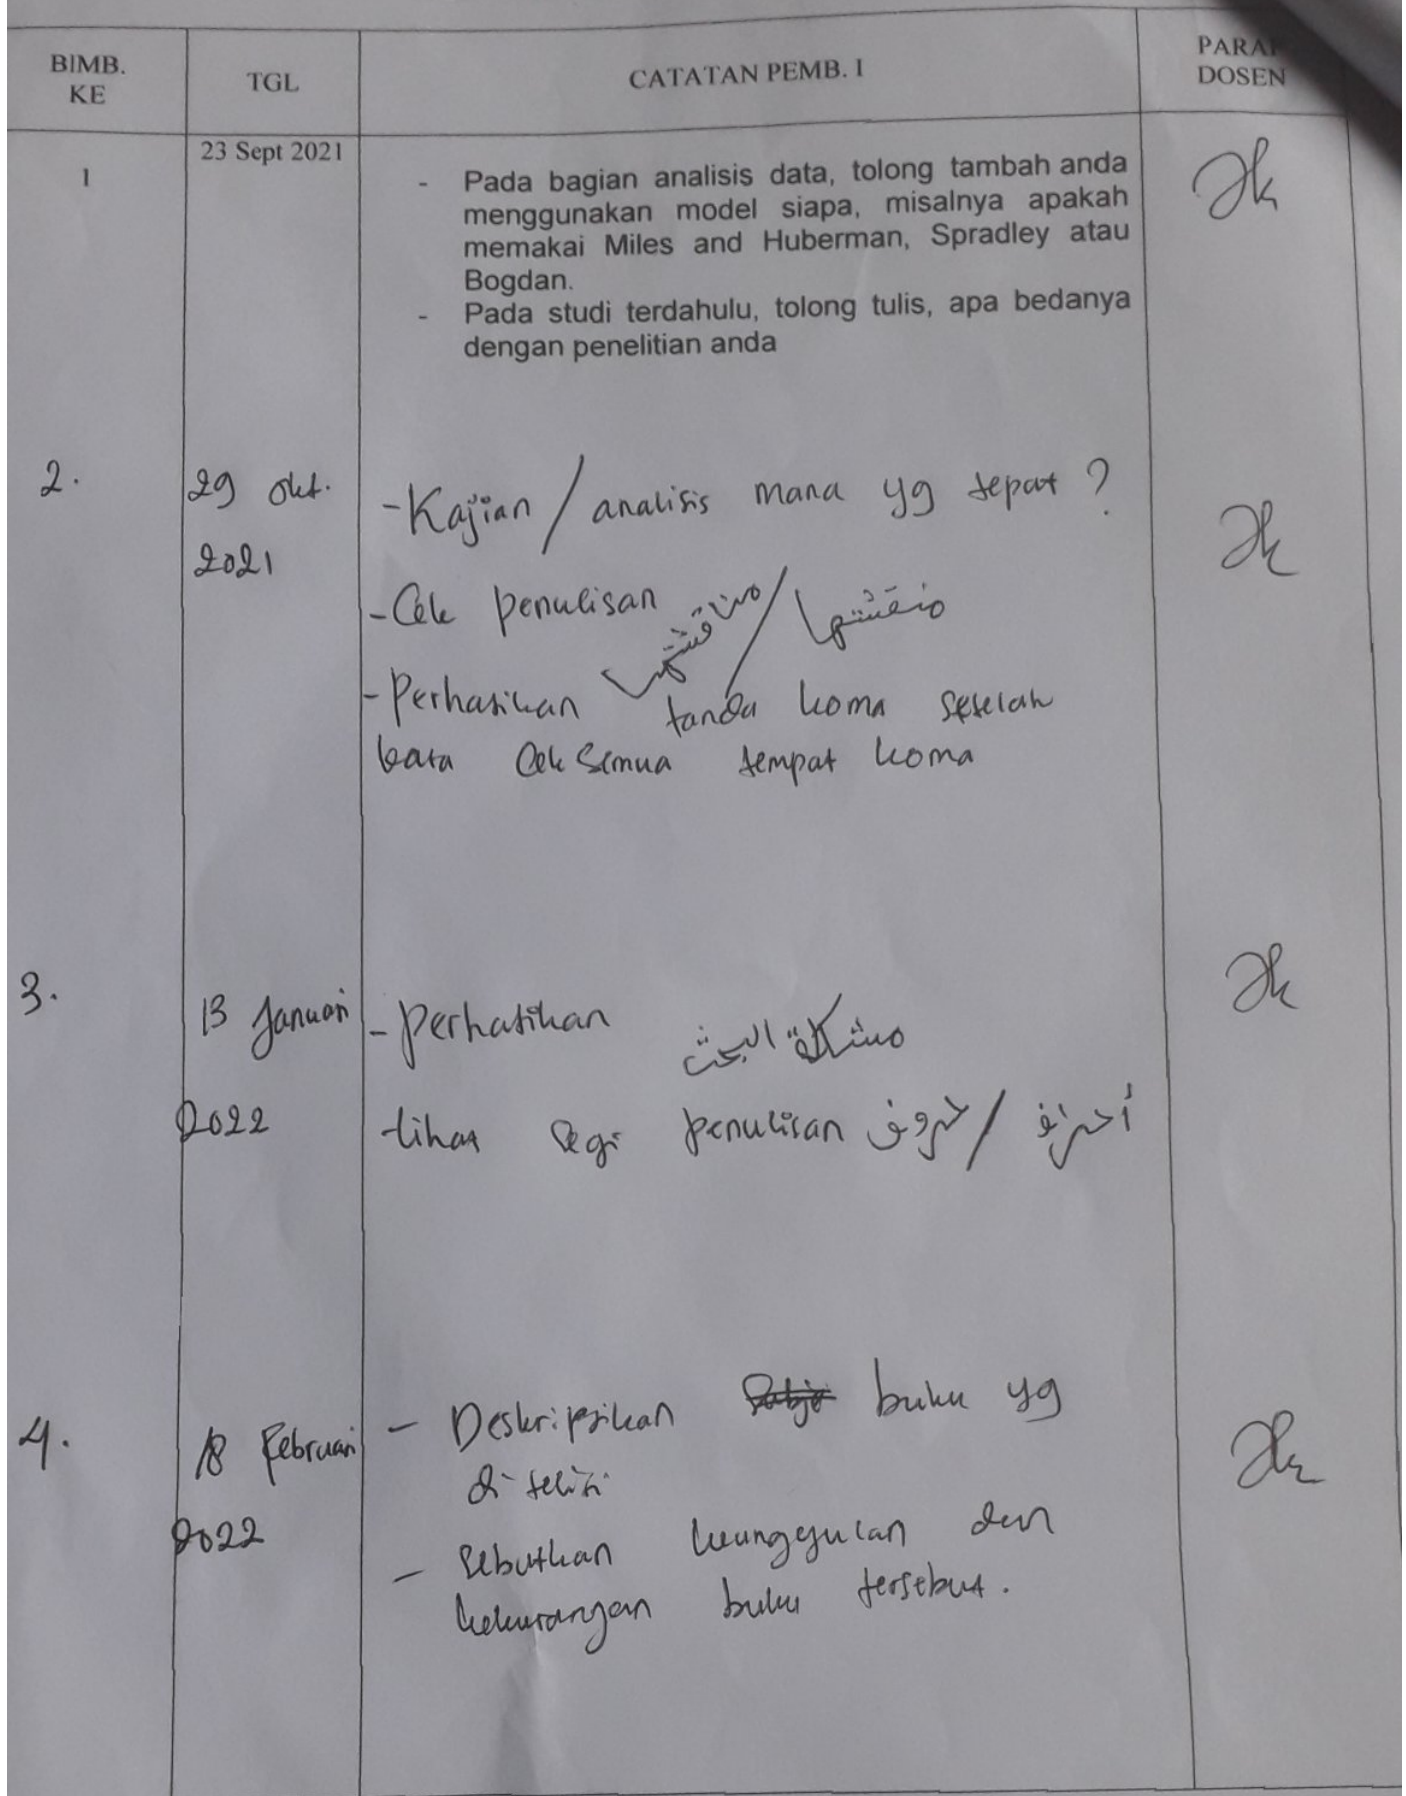 BIMB.
KE
TGL
CATATAN PEMB. I
DOSEN
1
23 Sept 2021
- Pada bagian analisis data, tolong tambah anda
menggunakan model siapa, misalnya apakah
memakai Miles and Huberman, Spradley atau
Bogdan.
- Pada studi terdahulu, tolong tulis, apa bedanya
dengan penelitian anda
2.
29 Okt.
2021
- Kajian / analisis mana yg tepat ?
- Cek penulisan مناقشتها / منقشتها
- Perhatikan tanda koma setelah
kata Cek semua tempat koma
3.
13 Januari
2022
- Perhatikan مشكلة البحث
- lihat segi penulisan حروف /
4.
18 Februari
2022
- Deskripsikan buku yg
di teliti
- Sebutkan keunggulan dan
kekurangan buku tersebut.